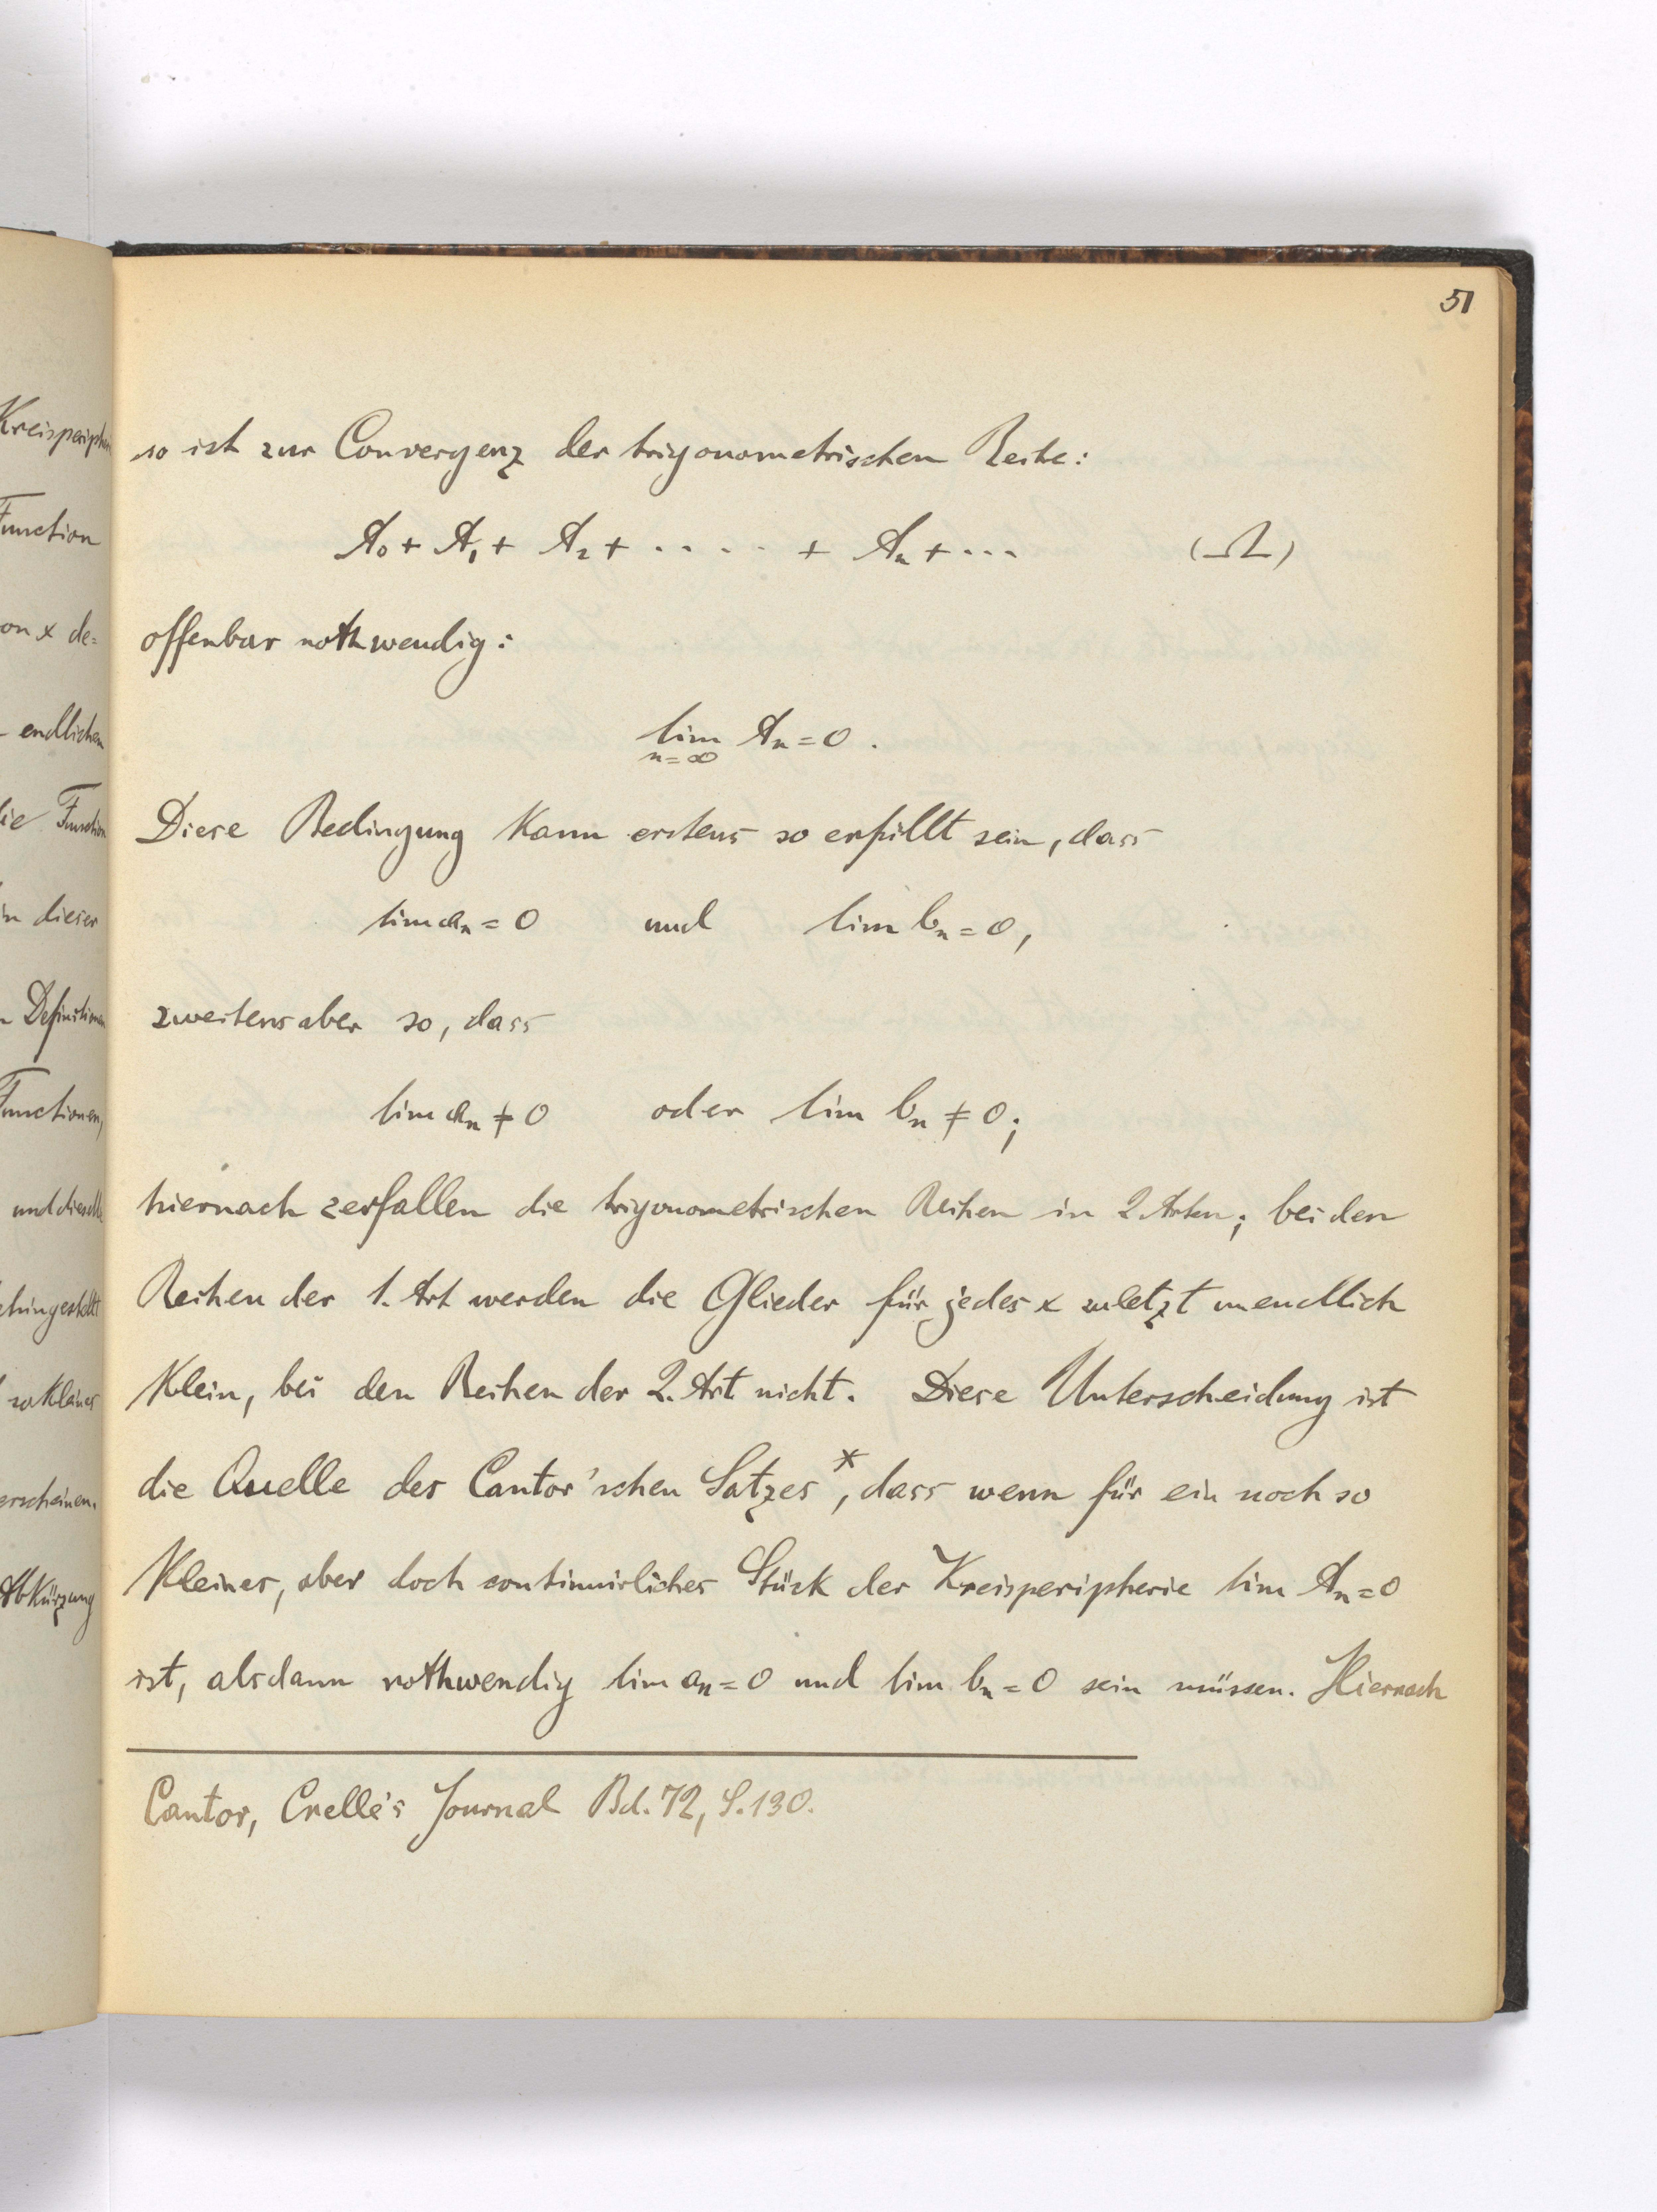 51
so ist zur Convergenz der trigonometrischen Reihe:
A₀ + A₁ + A₂ + ····· + Aₙ + ··· (Ω)
offenbar nothwendig:
lim Aₙ = 0.
n=∞
Diese Bedingung kann erstens so erfüllt sein, dass
lim aₙ = 0 und lim bₙ = 0,
zweitens aber so, dass
lim aₙ ≠ 0 oder lim bₙ ≠ 0;
hiernach zerfallen die trigonometrischen Reihen in 2 Arten; bei den
Reihen der 1. Art werden die Glieder für jedes x zuletzt unendlich
klein, bei den Reihen der 2. Art nicht. Diese Unterscheidung ist
die Quelle des Cantor'schen Satzes*, dass wenn für ein noch so
kleines, aber doch continuirliches Stück der Kreisperipherie lim Aₙ = 0
ist, alsdann nothwendig lim aₙ = 0 und lim bₙ = 0 sein müssen. Hiernach
Cantor, Crelle's Journal Bd. 72, S. 130.
Function
on x de=
endlichen
Function
in dieser
Functionen,
und dieselbe
so kleines
erscheinen.
Abkürzung